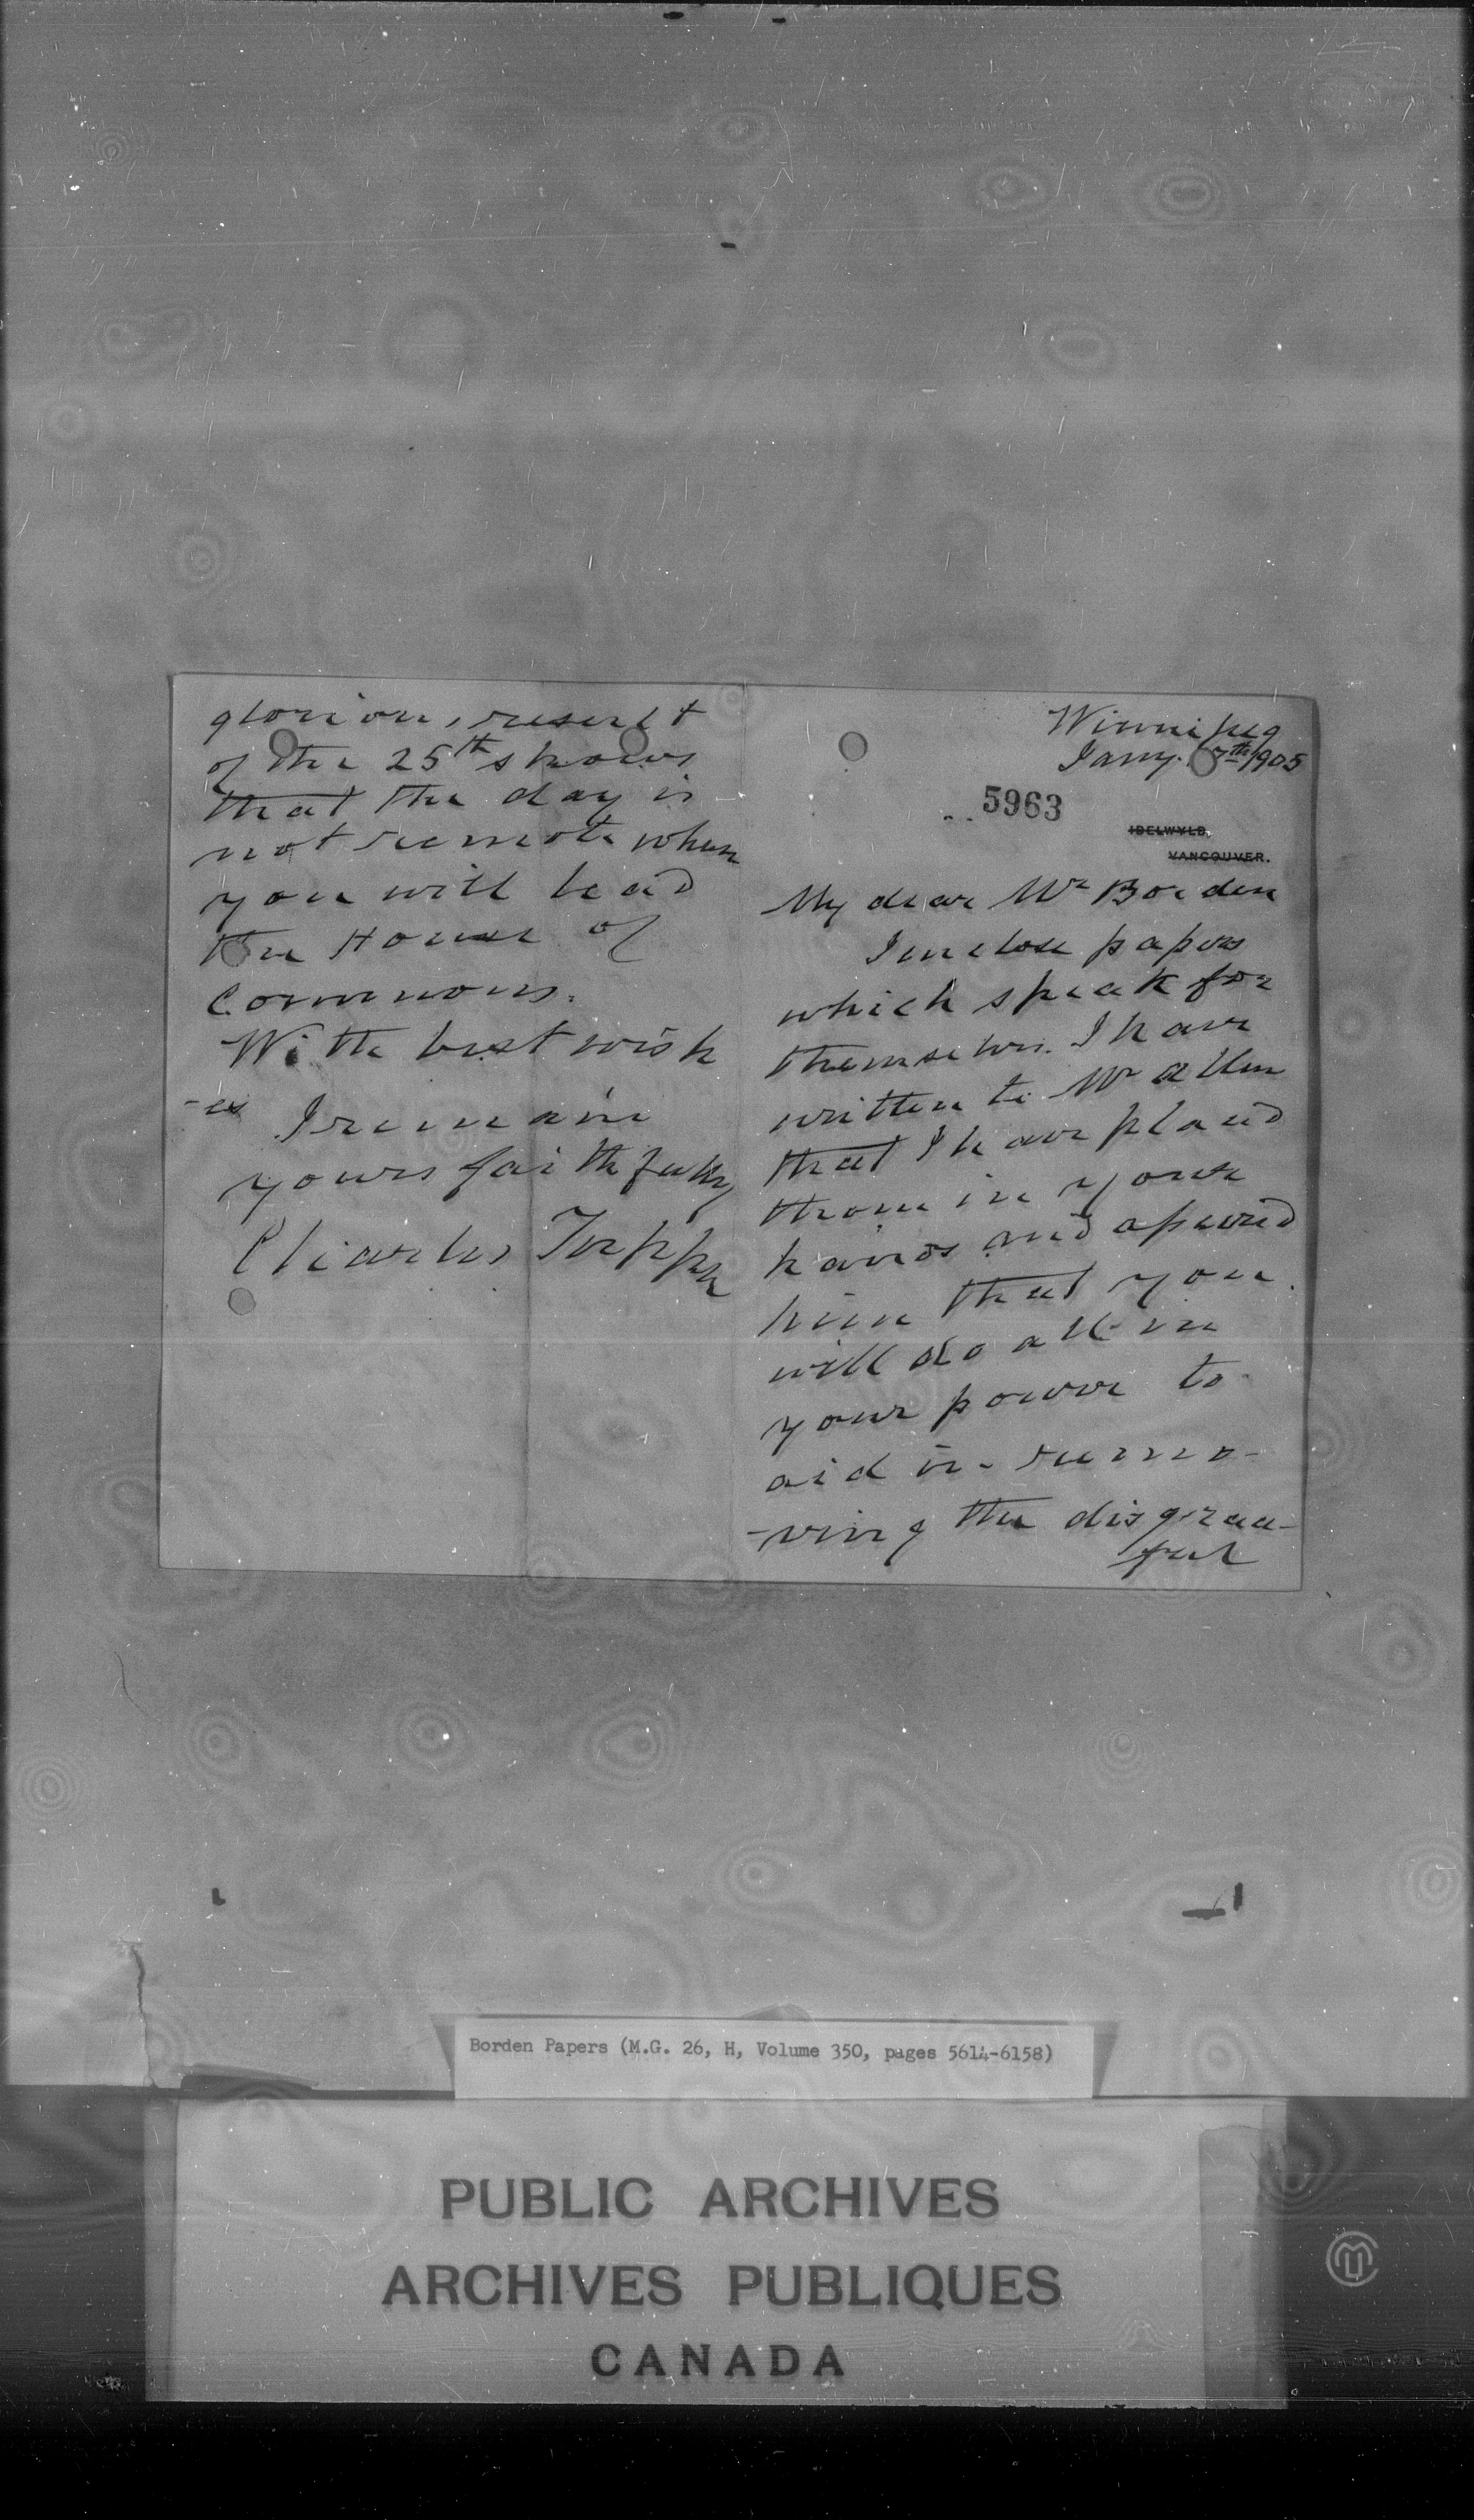 Winnipeg
Jany. 7th/1905
5963
IDELWYLD,
VANCOUVER.
My dear Mr Borden
I inclose papers
which speak for
themselves. I have
written to Mr Allen
that I have placed
them in your
hands and assured
him that you
will do all in
your power to
aid in remo-
-ving the disgrace-
ful
glorious result
of the 25th shows
that the day is
not remote when
you will lead
the House of
Commons.
With best wish
-es I remain
yours faithfully
Charles Tupper
Borden Papers (M.G. 26, H, Volume 350, pages 5614-6158)
PUBLIC ARCHIVES
ARCHIVES PUBLIQUES
CANADA